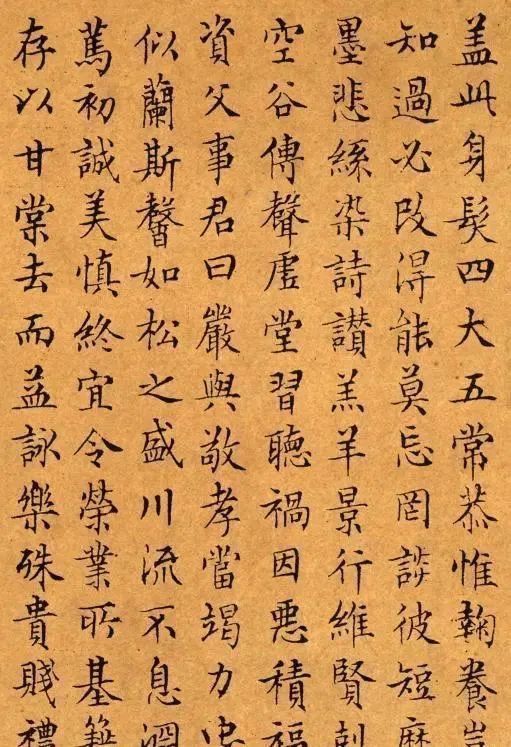 盖此身髮四大五常恭惟鞠養豈
知過必改得能莫忘罔談彼短靡
墨悲絲染詩讃羔羊景行維賢剋
空谷傳聲虛堂習聽禍因惡積福
資父事君曰嚴與敬孝當竭力忠
似蘭斯馨如松之盛川流不息淵
篤初誠美慎終宜令榮業所基籍
存以甘棠去而益詠樂殊貴賤禮